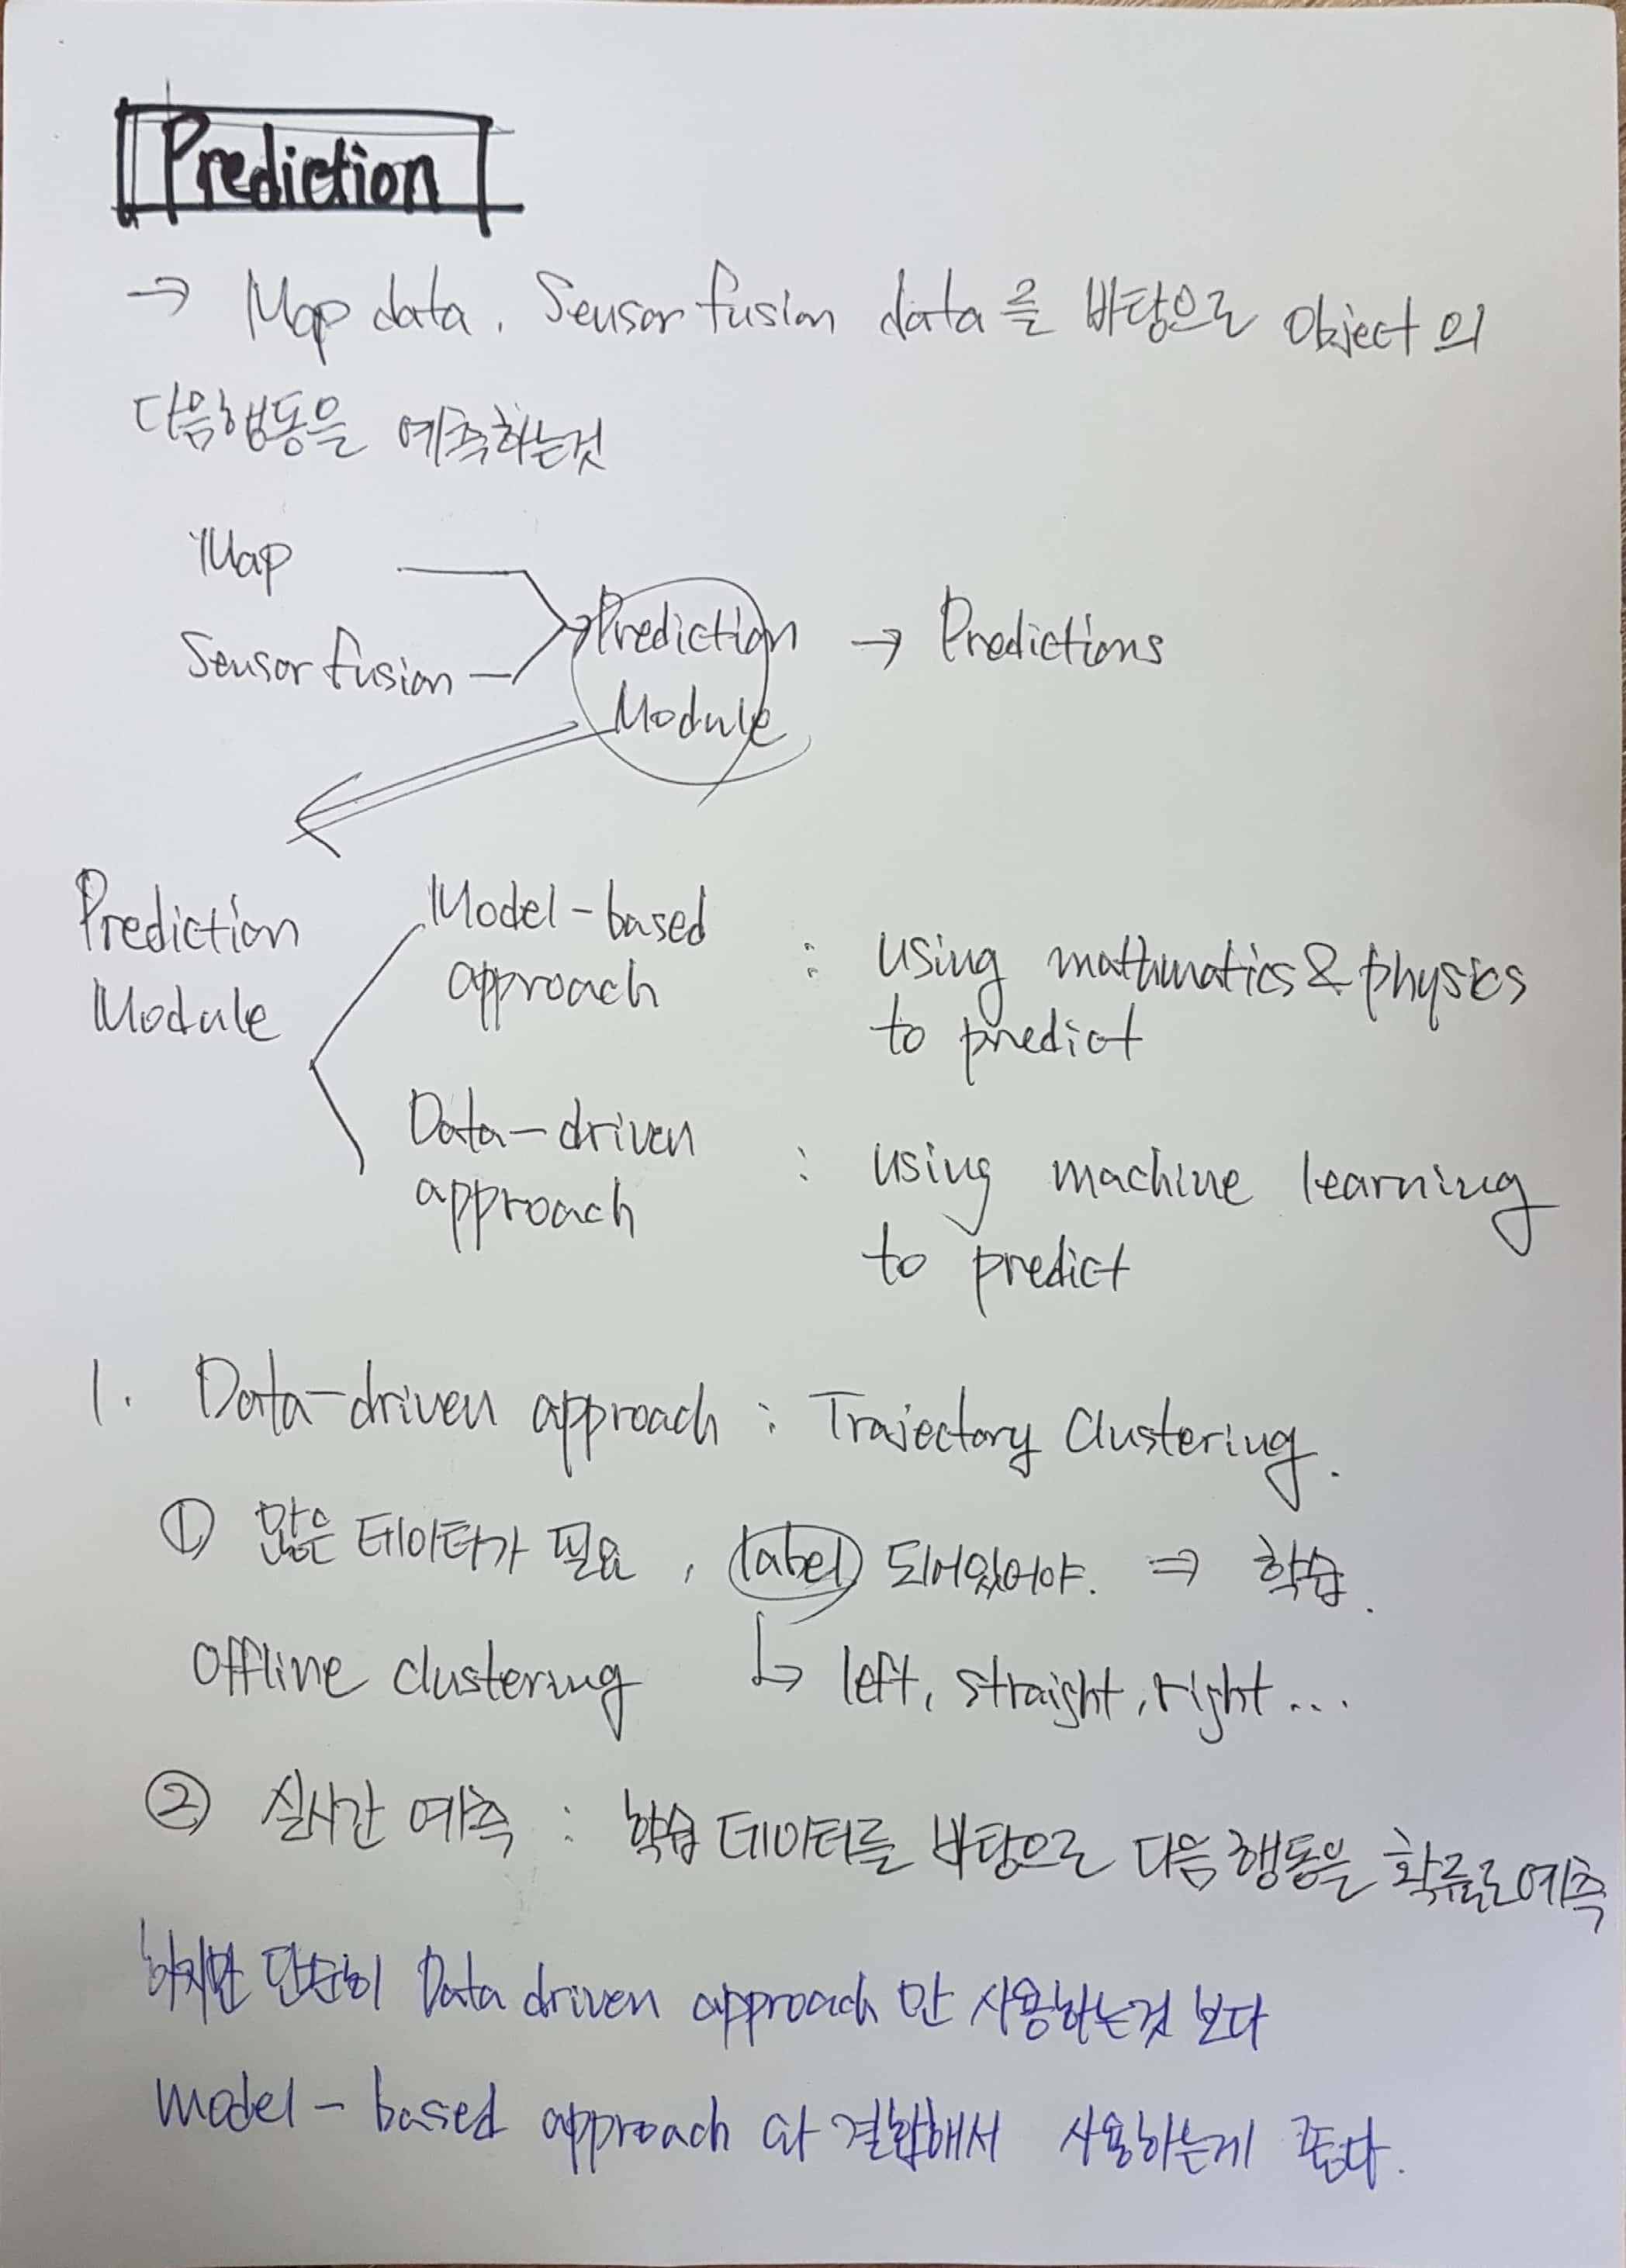 Prediction
→ Map data, Sensor fusion data를 바탕으로 object의
다음행동을 예측하는것
Map
Sensor fusion
Prediction
Module
→ Predictions
Prediction
Module
Model-based
approach
: using mathmatics & physics
to predict
Data-driven
approach
: using machine learning
to predict
1. Data-driven approach : Trajectory Clustering.
① 많은 데이터가 필요, label 되어있어야. ⇒ 학습.
Offline clustering
↳ left, straight, right...
② 실시간 예측 : 학습 데이터를 바탕으로 다음행동을 확률로예측
하지만 단순히 Data driven approach 만 사용하는것 보다
model-based approach 와 결합해서 사용하는게 좋다.